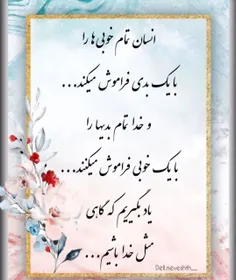 انسان تمام خوبی‌ها را
با یک بدی فراموش میکند...
و خدا تمام بدیها را
با یک خوبی فراموش میکند...
یاد بگیریم که گاهی
مثل خدا باشیم...